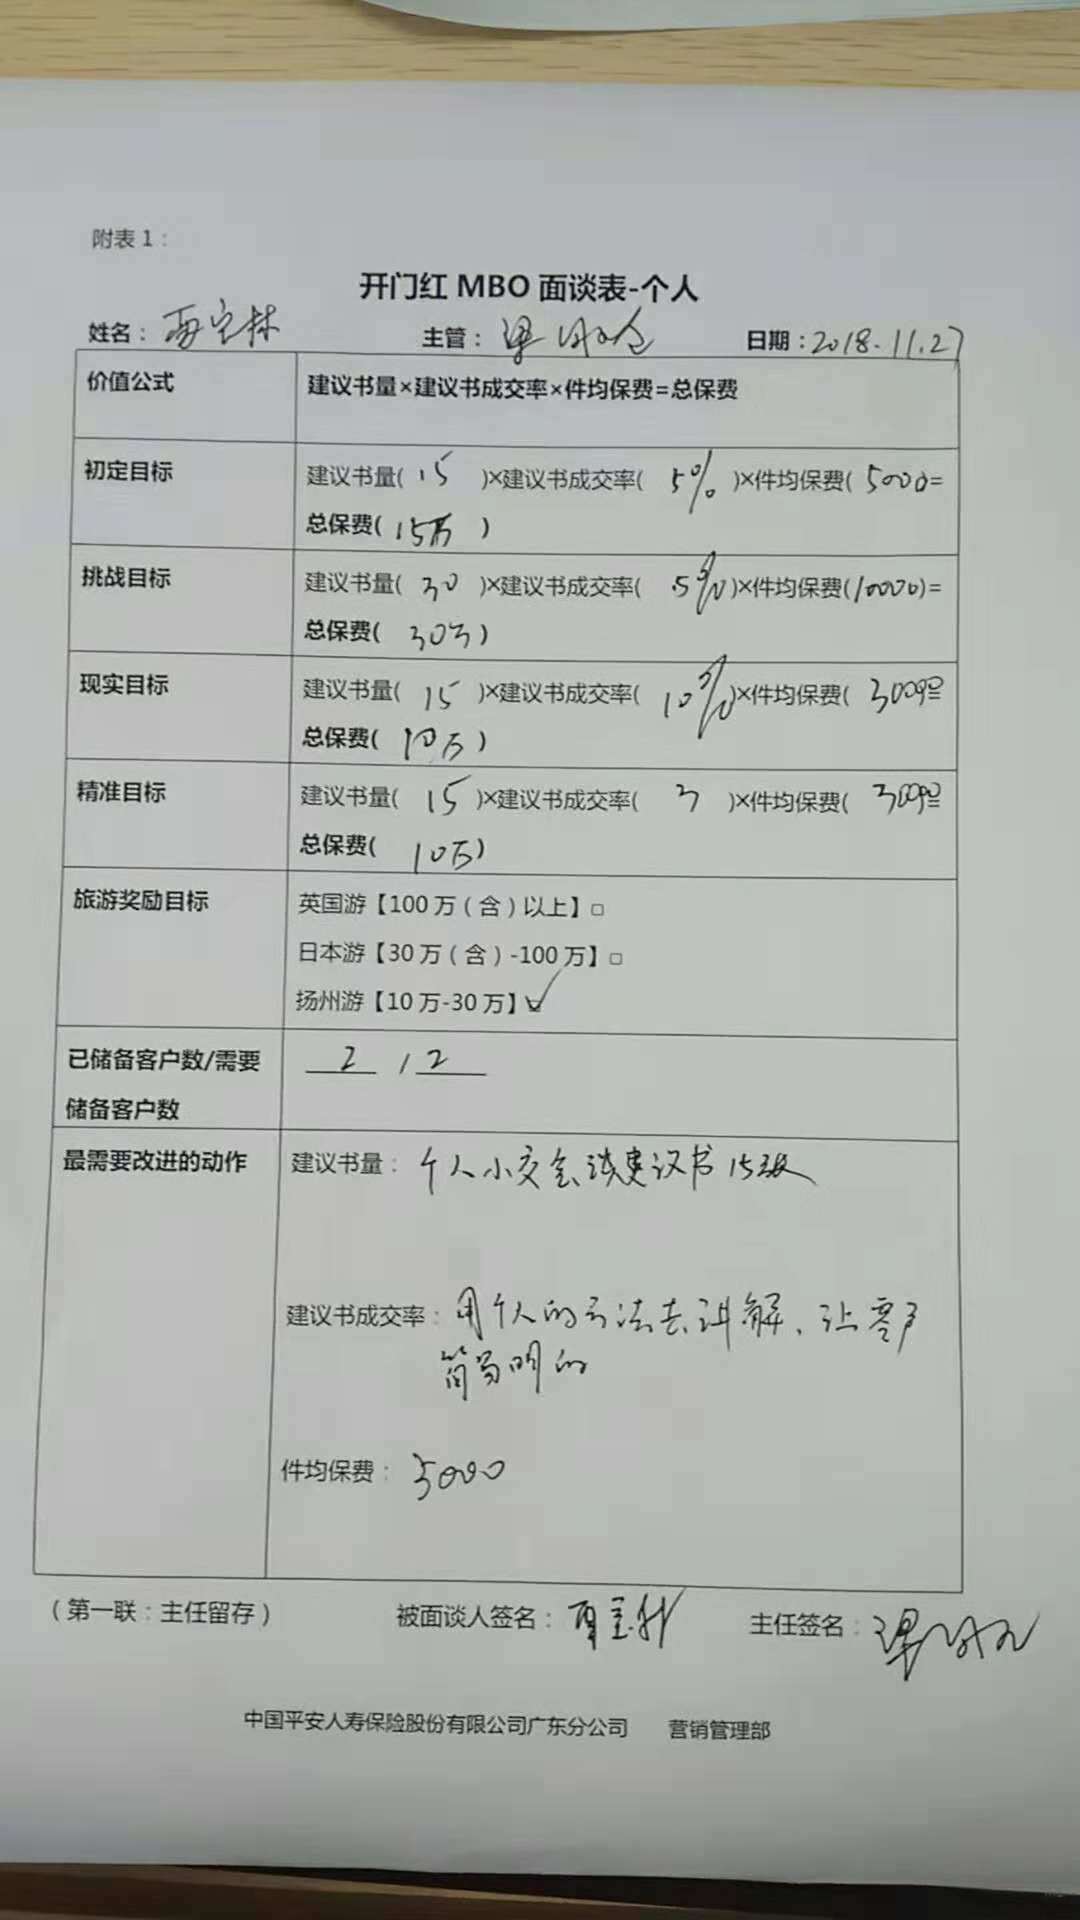 附表1：
开门红 MBO 面谈表-个人
姓名： 主管：梁 日期：2018.11.27
价值公式 建议书量×建议书成交率×件均保费=总保费
初定目标 建议书量( 15 )×建议书成交率( 5% )×件均保费( 5000=
总保费( 15万 )
挑战目标 建议书量( 30 )×建议书成交率( 5% )×件均保费(10000)=
总保费( 30万 )
现实目标 建议书量( 15 )×建议书成交率( 10% )×件均保费( 3000=
总保费( 10万 )
精准目标 建议书量( 15 )×建议书成交率( 3 )×件均保费( 3000=
总保费( 10万 )
旅游奖励目标 英国游【100万（含）以上】□
日本游【30万（含）-100万】□
扬州游【10万-30万】☑
已储备客户数/需要 2 / 2
储备客户数
最需要改进的动作 建议书量：个人小交会 建议书15
建议书成交率：用个人的方法去讲解、让客户
简易明的
件均保费：5000
（第一联：主任留存） 被面谈人签名： 主任签名：梁
中国平安人寿保险股份有限公司广东分公司 营销管理部